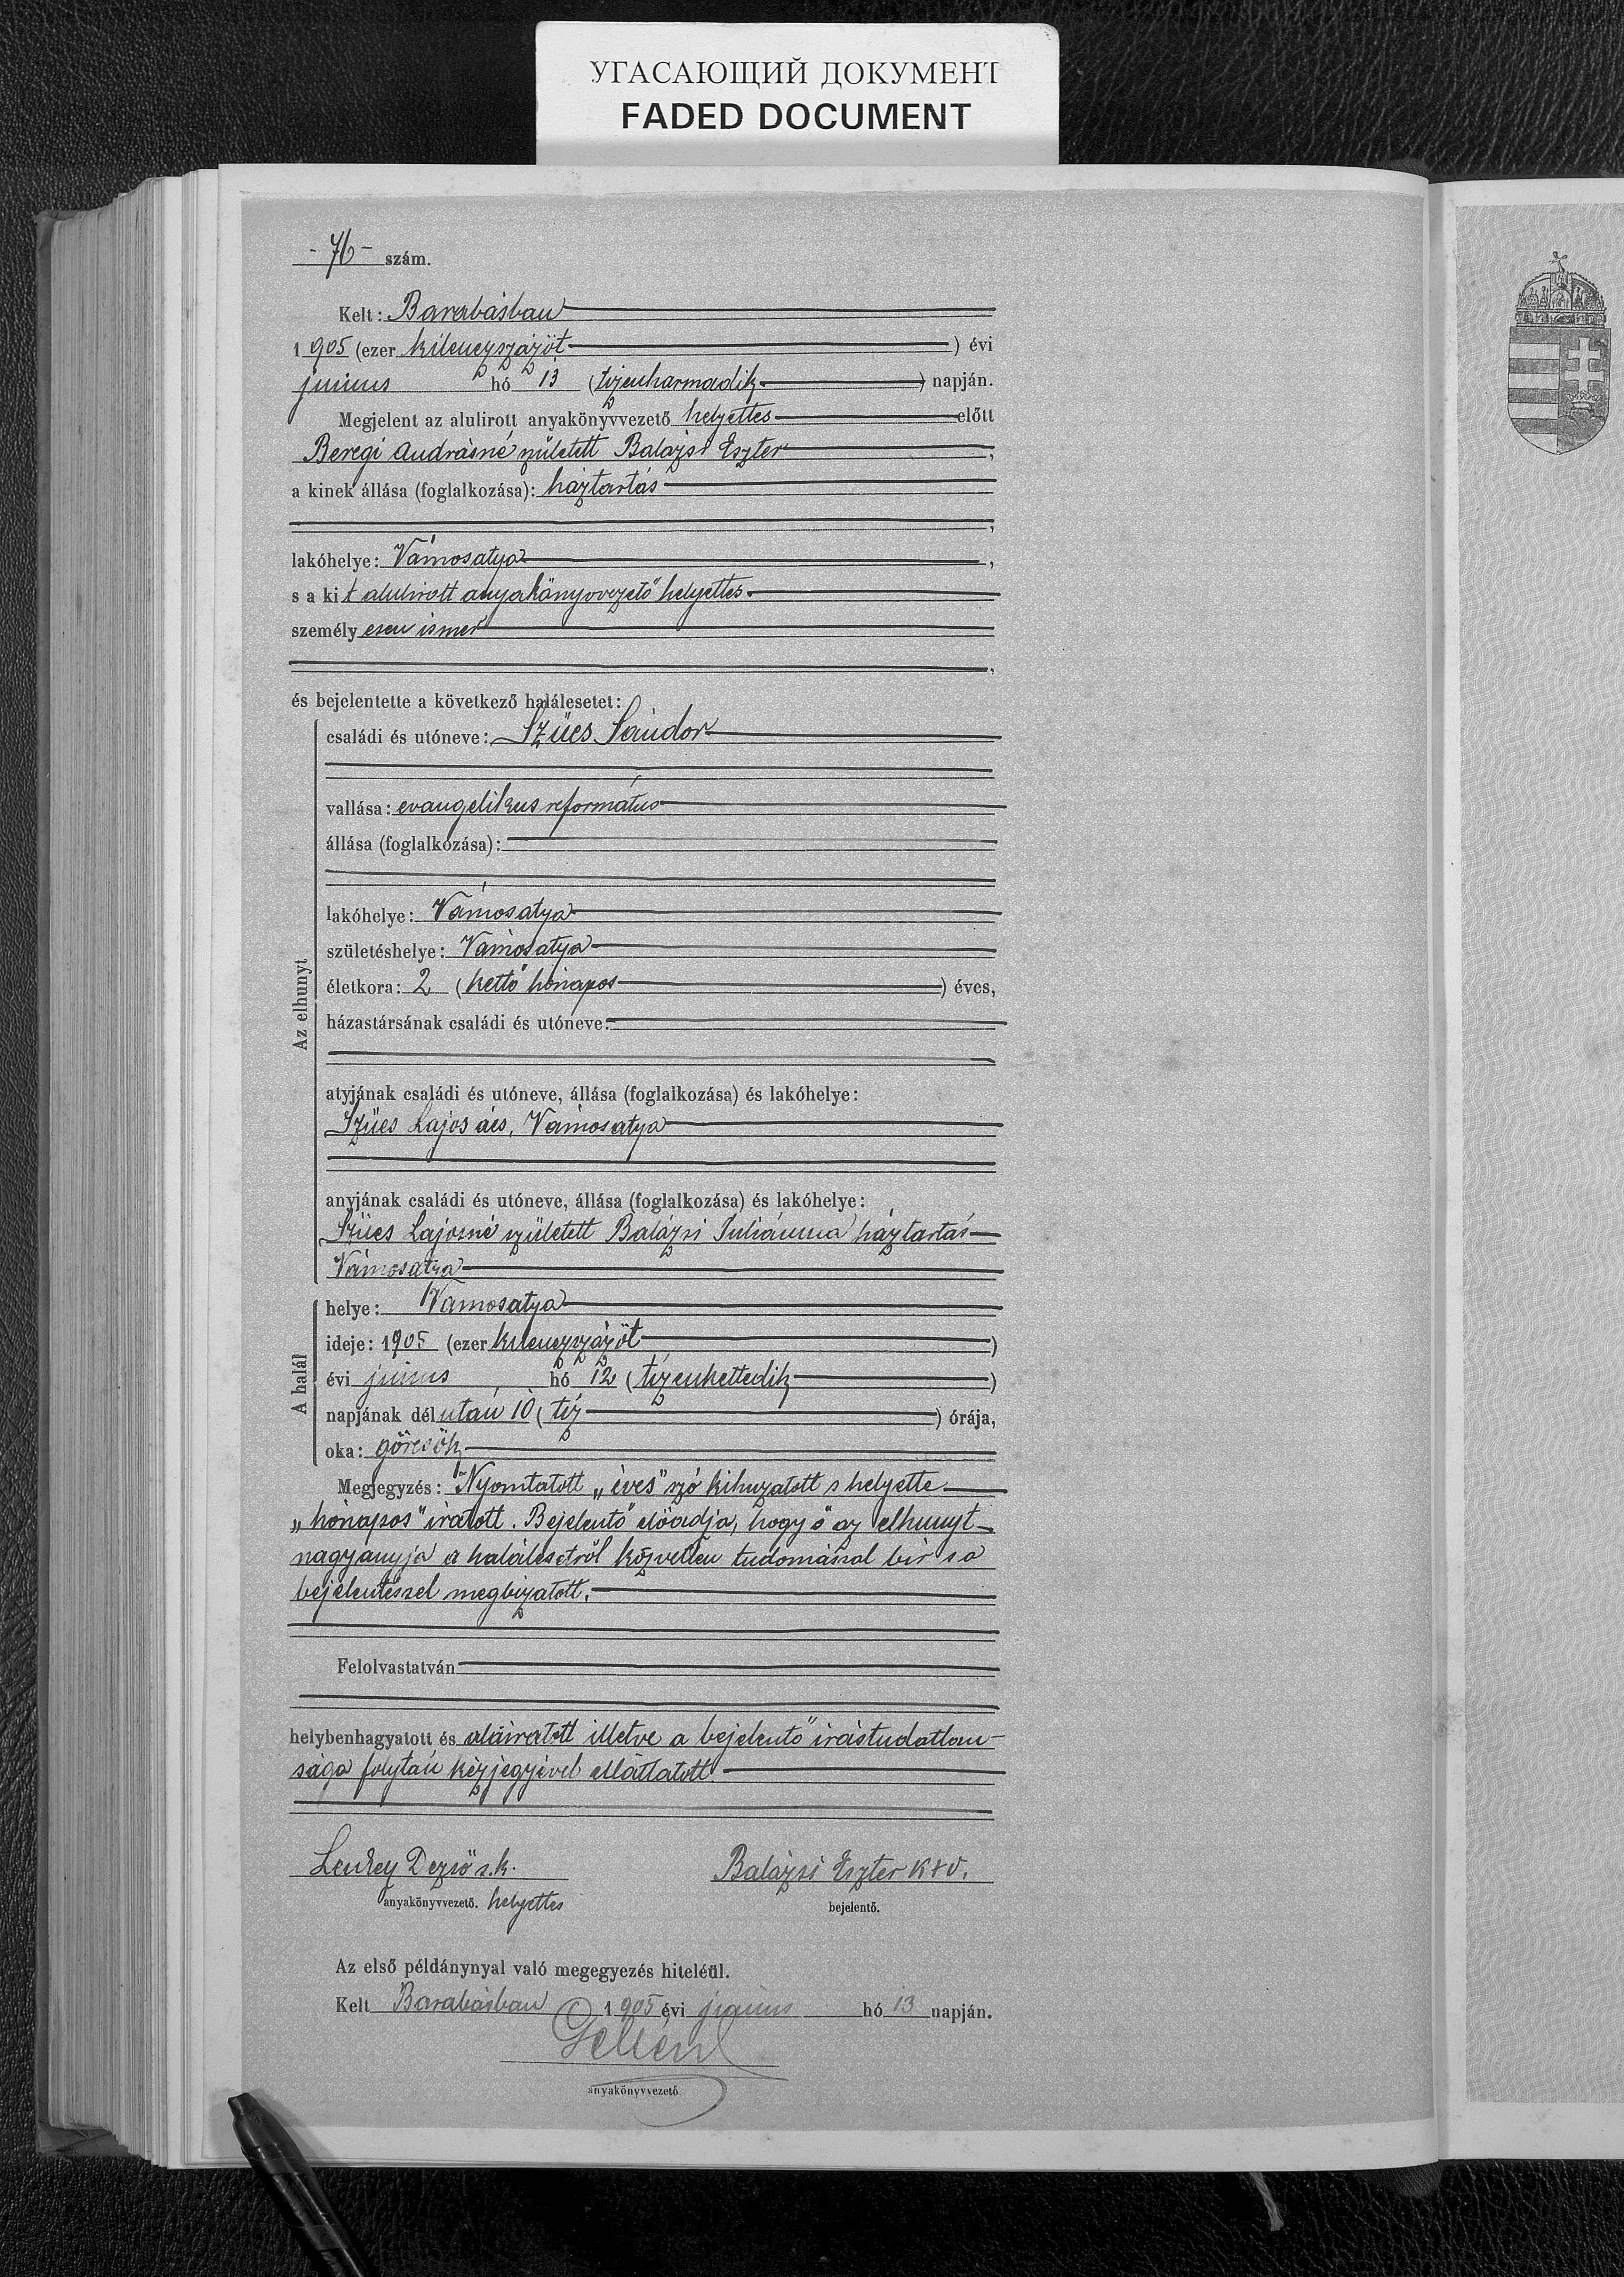 УГАСАЮЩИЙ ДОКУМЕНТ
FADED DOCUMENT
- 76 - szám.
Kelt: Barabásban
1905 (ezer kilenczszázöt) évi
junius hó 13 (tizenharmadik) napján.
Megjelent az alulirott anyakönyvvezető helyettes előtt
Beregi Andrásné született Balázsi Eszter,
a kinek állása (foglalkozása): háztartás
,
lakóhelye: Vámosatya,
s a kit alulirott anyakönyvvezető helyettes
személyesen ismer
,
és bejelentette a következő halálesetet:
családi és utóneve: Szücs Sándor
vallása: evangelikus református
állása (foglalkozása):
lakóhelye: Vámosatya
születéshelye: Vámosatya
életkora: 2 (kettő hónapos) éves,
házastársának családi és utóneve:
Az elhunyt
atyjának családi és utóneve, állása (foglalkozása) és lakóhelye:
Szücs Lajos ács, Vámosatya
anyjának családi és utóneve, állása (foglalkozása) és lakóhelye:
Szücs Lajosné született Balázsi Juliánna háztartás
Vámosatya
helye: Vámosatya
ideje: 1905 (ezer kilenczszázöt)
A halál
évi junius hó 12 (tizenkettedik)
napjának délután 10 (tiz) órája,
oka: görcsök
Megjegyzés: Nyomtatott „éves" szó kihuzatott s helyette
„hónapos" iratott. Bejelentő előadja, hogy ő az elhunyt
nagyanyja a halálesetről közvetlen tudomással bir s a
bejelentéssel megbizatott.
Felolvastatván
helybenhagyatott és aláiratott illetve a bejelentő irástudatlan-
sága folytán kézjegyével elláttatott.
Dezső s.k.
anyakönyvvezető. helyettes
Balázsi Eszter K+V.
bejelentő.
Az első példánynyal való megegyezés hiteléül.
Kelt Barabásban 1905 évi junius hó 13 napján.
anyakönyvvezető